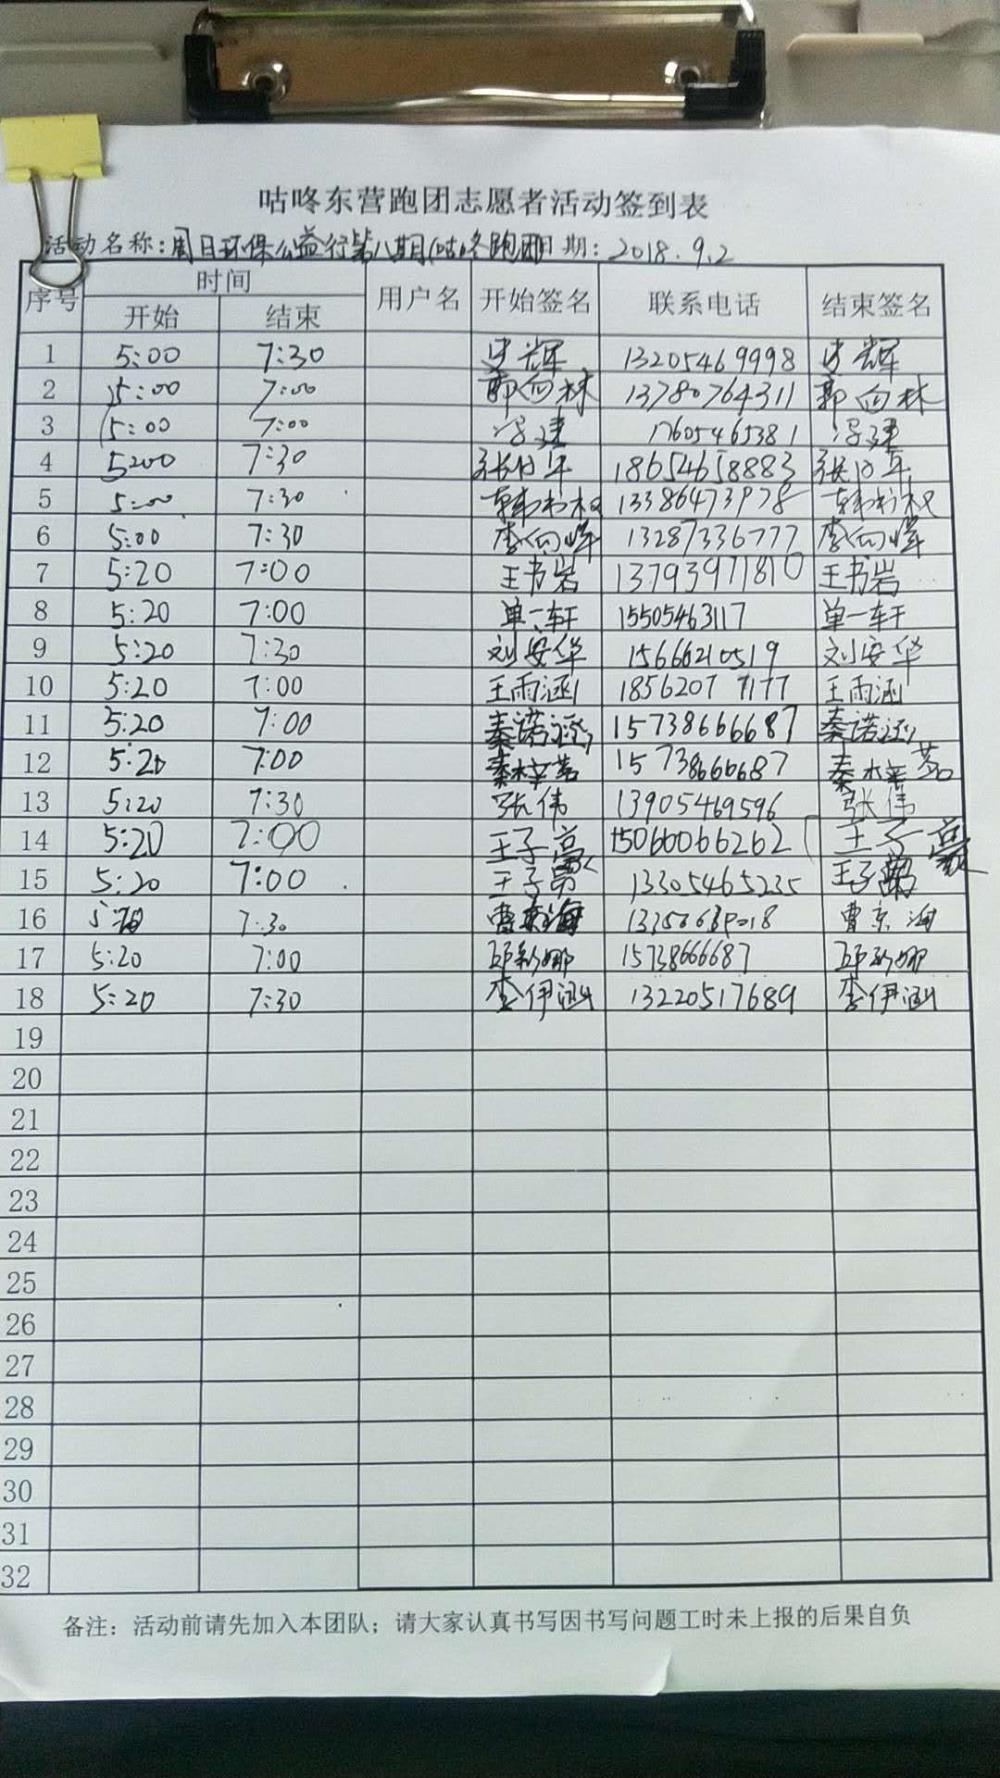 咕咚东营跑团志愿者活动签到表
活动名称:周日环保公益行第八期(咕咚跑团)日期: 2018.9.2
序号 时间 用户名 开始签名 联系电话 结束签名
开始 结束
1 5:00 7:30 史辉 13205469998 史辉
2 5:00 7:00 郭向林 13780764311 郭向林
3 5:00 7:00 冯建 17605465381 冯建
4 5:00 7:30 18654658883
5 5:00 7:30 13386473978
6 5:00 7:30 李向峰 13287336777 李向峰
7 5:20 7:00 王书岩 13793971810 王书岩
8 5:20 7:00 单一轩 15505463117 单一轩
9 5:20 7:30 刘安华 15666210519 刘安华
10 5:20 7:00 王雨涵 18562077177 王雨涵
11 5:20 7:00 秦诺涵 15738666687 秦诺涵
12 5:20 7:00 15738666687
13 5:20 7:30 张伟 13905469596 张伟
14 5:20 7:00 王子豪 15066066262 王子豪
15 5:20 7:00 王子 13305465235 王子
16 7:30 曹京海 曹京海
17 5:20 7:00 15738666687
18 5:20 7:30 李伊涵 13220517689 李伊涵
19
20
21
22
23
24
25
26
27
28
29
30
31
32
备注：活动前请先加入本团队；请大家认真书写因书写问题工时未上报的后果自负